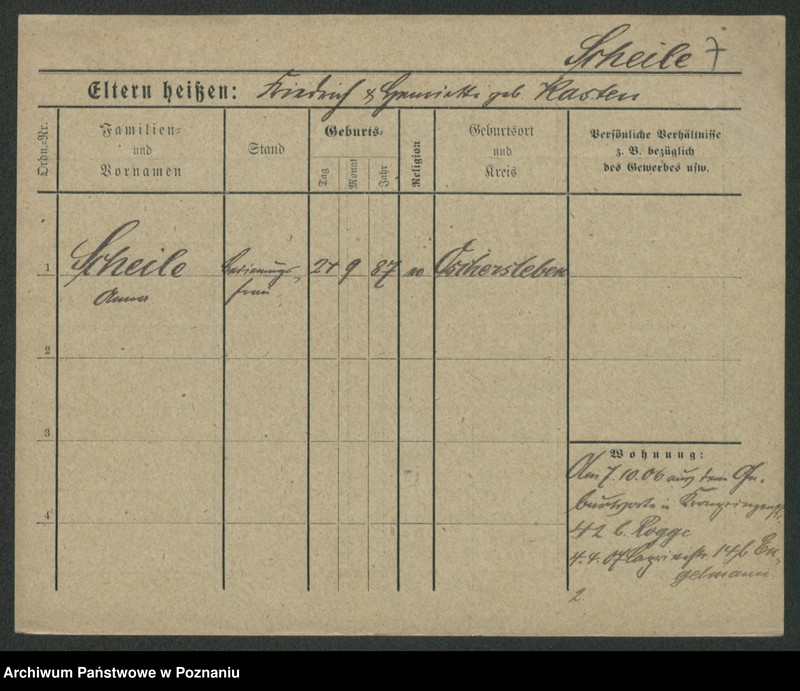 Scheile 7
Eltern heißen: Friedrich & Henriette geb Kasten
Ordn.=Nr.
Familien=
und
Vornamen
Stand
Geburts=
Tag
Monat
Jahr
Religion
Geburtsort
und
Kreis
Persönliche Verhältnisse
z. B. bezüglich
des Gewerbes usw.
1 Scheile Bedienungs 24 9 87 Oschersleben
Anna frau
2
3
4
Wohnung:
Am 7.10.06 aus dem Ge-
burtsorte in Kronprinzenstr.
42 b. Rogge
4.4.07 Caprivistr. 14 b En-
gelmann
2.
Archiwum Państwowe w Poznaniu